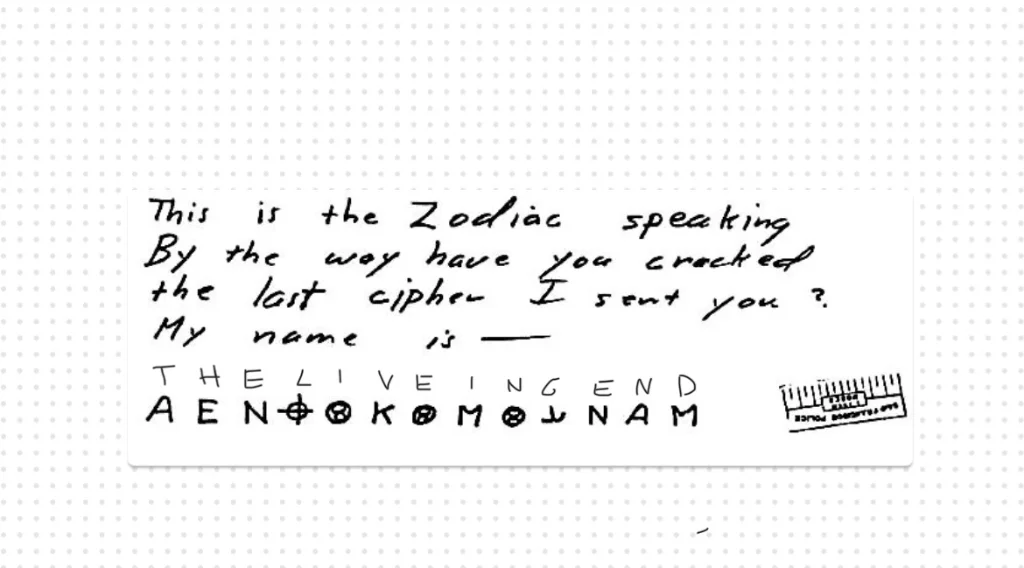 This is the Zodiac speaking
By the way have you cracked
the last cipher I sent you?
My name is —
T H E L I V E I N G E N D
A E N ⌖ ⊗ K ⊗ M ⊗ ⅃ N A M